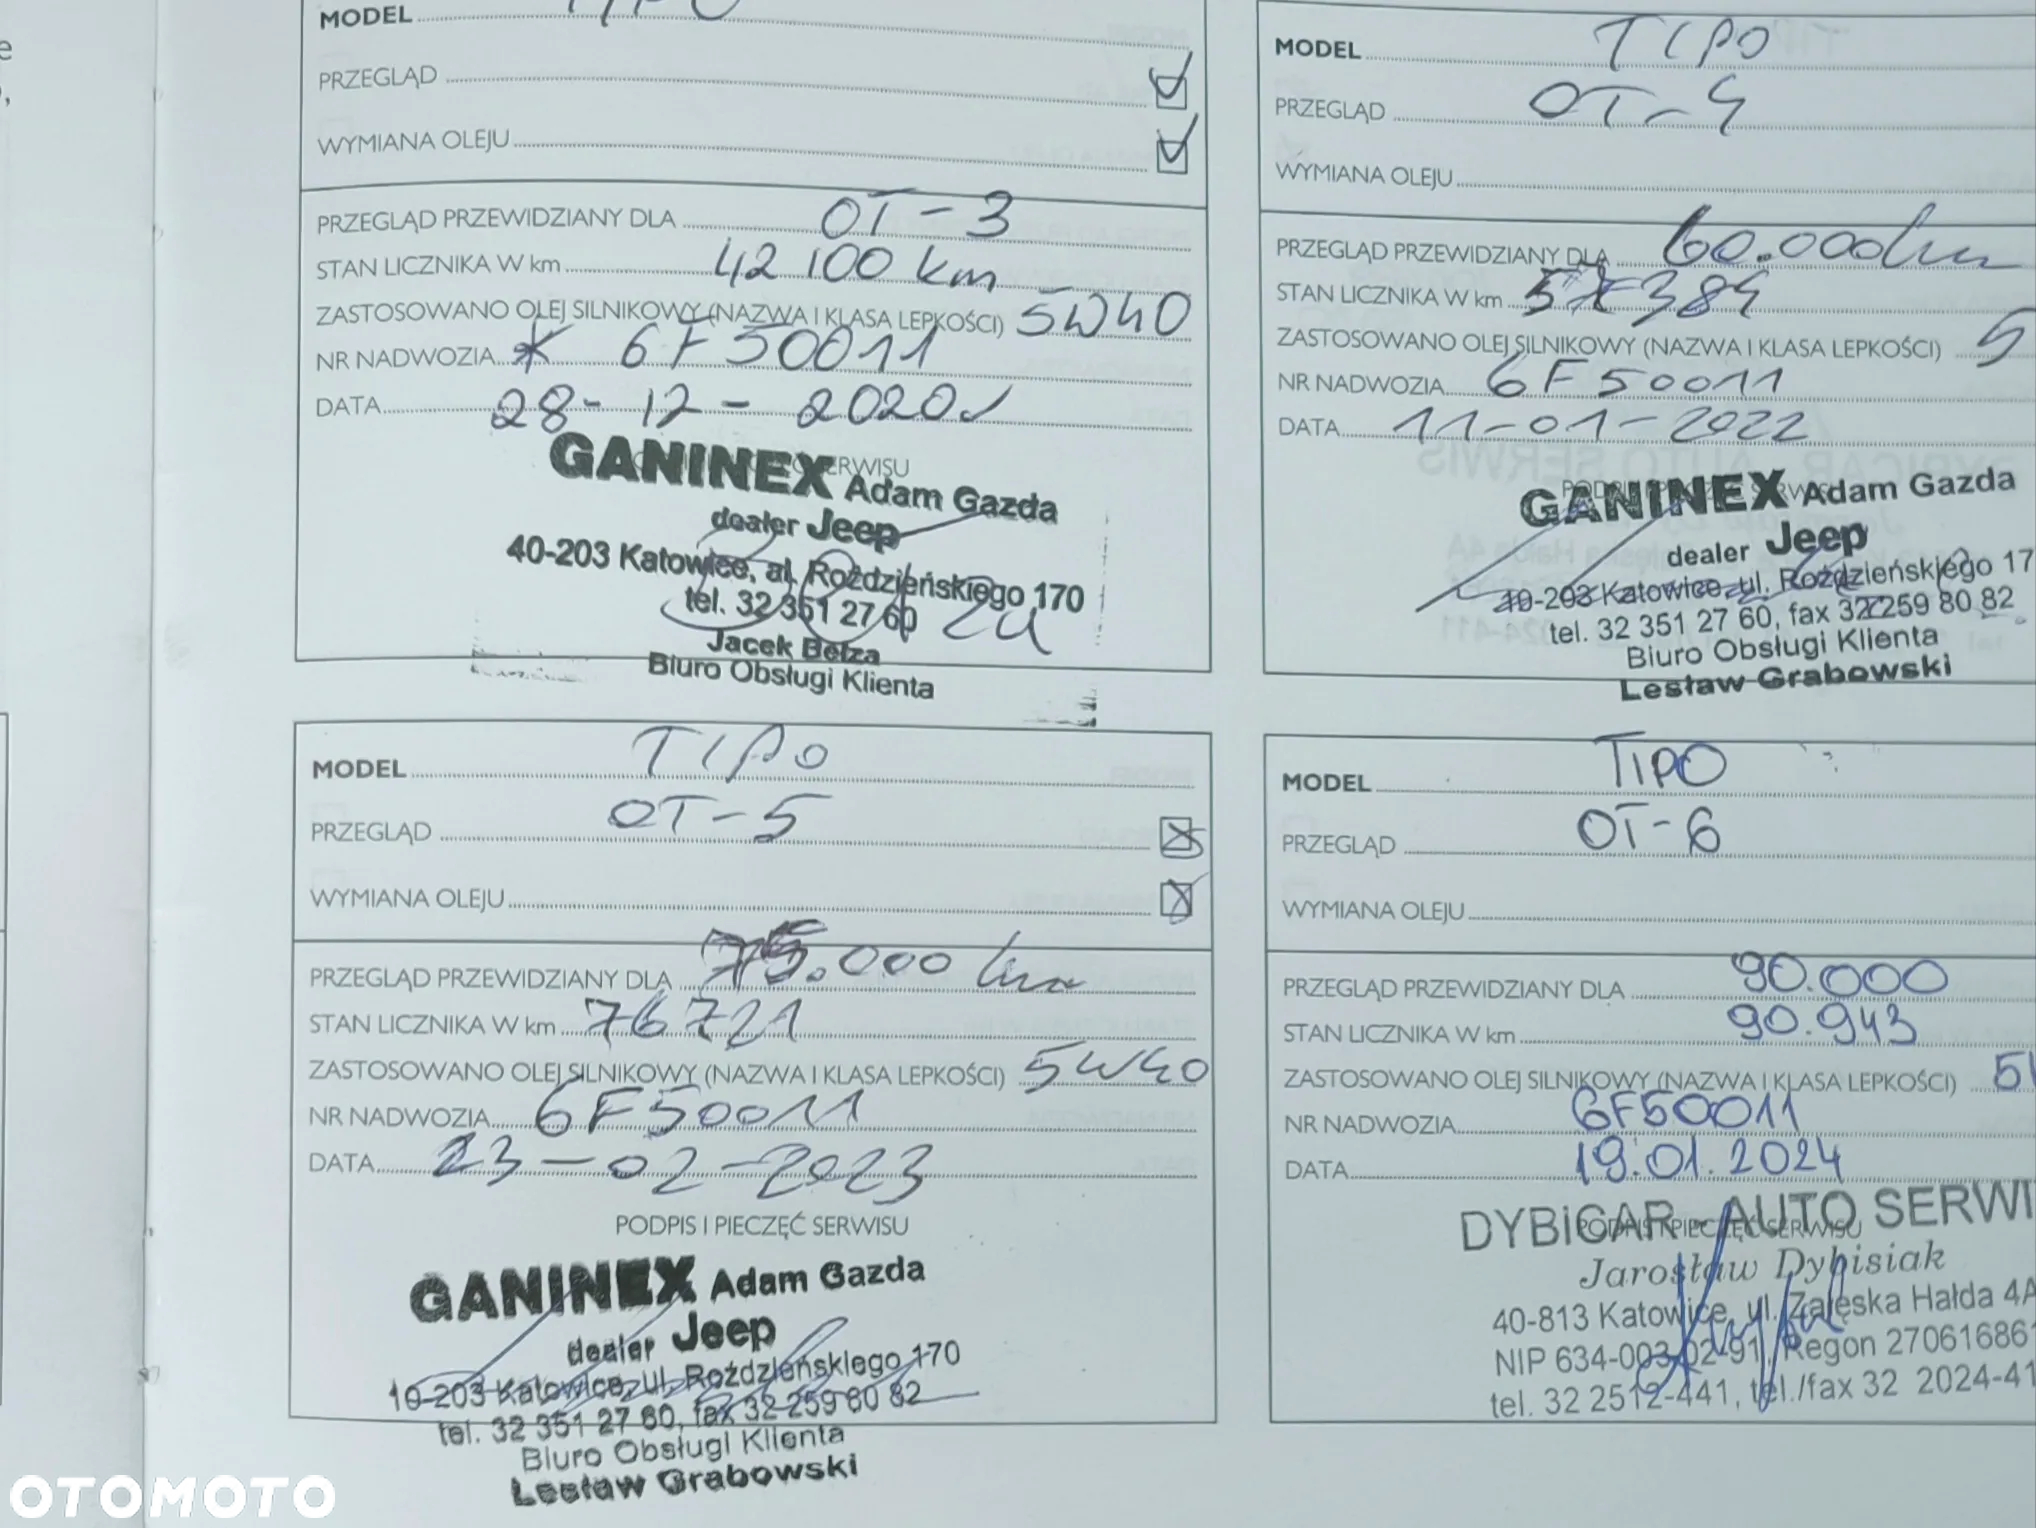 MODEL TIPO
PRZEGLĄD
WYMIANA OLEJU
PRZEGLĄD PRZEWIDZIANY DLA OT-3
STAN LICZNIKA W km 42 100 km
ZASTOSOWANO OLEJ SILNIKOWY (NAZWA I KLASA LEPKOŚCI) 5W40
NR NADWOZIA 6F50011
DATA 28-12-2020
GANINEX Adam Gazda
dealer Jeep
40-203 Katowice, al. Roździeńskiego 170
tel. 32 351 27 60
Jacek Bełza
Biuro Obsługi Klienta
MODEL TIPO
PRZEGLĄD OT-4
WYMIANA OLEJU
PRZEGLĄD PRZEWIDZIANY DLA 60.000km
STAN LICZNIKA W km 57384
ZASTOSOWANO OLEJ SILNIKOWY (NAZWA I KLASA LEPKOŚCI) 5
NR NADWOZIA 6F50011
DATA 11-01-2022
GANINEX Adam Gazda
dealer Jeep
40-203 Katowice, ul. Roździeńskiego 17
tel. 32 351 27 60, fax 32 259 80 82
Biuro Obsługi Klienta
Lesław Grabowski
MODEL TIPO
PRZEGLĄD OT-5
WYMIANA OLEJU
PRZEGLĄD PRZEWIDZIANY DLA 75.000 km
STAN LICZNIKA W km 76721
ZASTOSOWANO OLEJ SILNIKOWY (NAZWA I KLASA LEPKOŚCI) 5W40
NR NADWOZIA 6F50011
DATA 23-02-2023
PODPIS I PIECZĘĆ SERWISU
GANINEX Adam Gazda
dealer Jeep
40-203 Katowice, ul. Roździeńskiego 170
tel. 32 351 27 60, fax 32 259 80 82
Biuro Obsługi Klienta
Lesław Grabowski
MODEL TIPO
PRZEGLĄD OT-6
WYMIANA OLEJU
PRZEGLĄD PRZEWIDZIANY DLA 90.000
STAN LICZNIKA W km 90.943
ZASTOSOWANO OLEJ SILNIKOWY (NAZWA I KLASA LEPKOŚCI) 5W
NR NADWOZIA 6F50011
DATA 19.01.2024
PODPIS I PIECZĘĆ SERWISU
DYBiCAR - AUTO SERWI
Jarosław Dybisiak
40-813 Katowice, ul. Załęska Hałda 4A
NIP 634-003-02-91, Regon 27061686
tel. 32 2512-441, tel./fax 32 2024-41
OTOMOTO